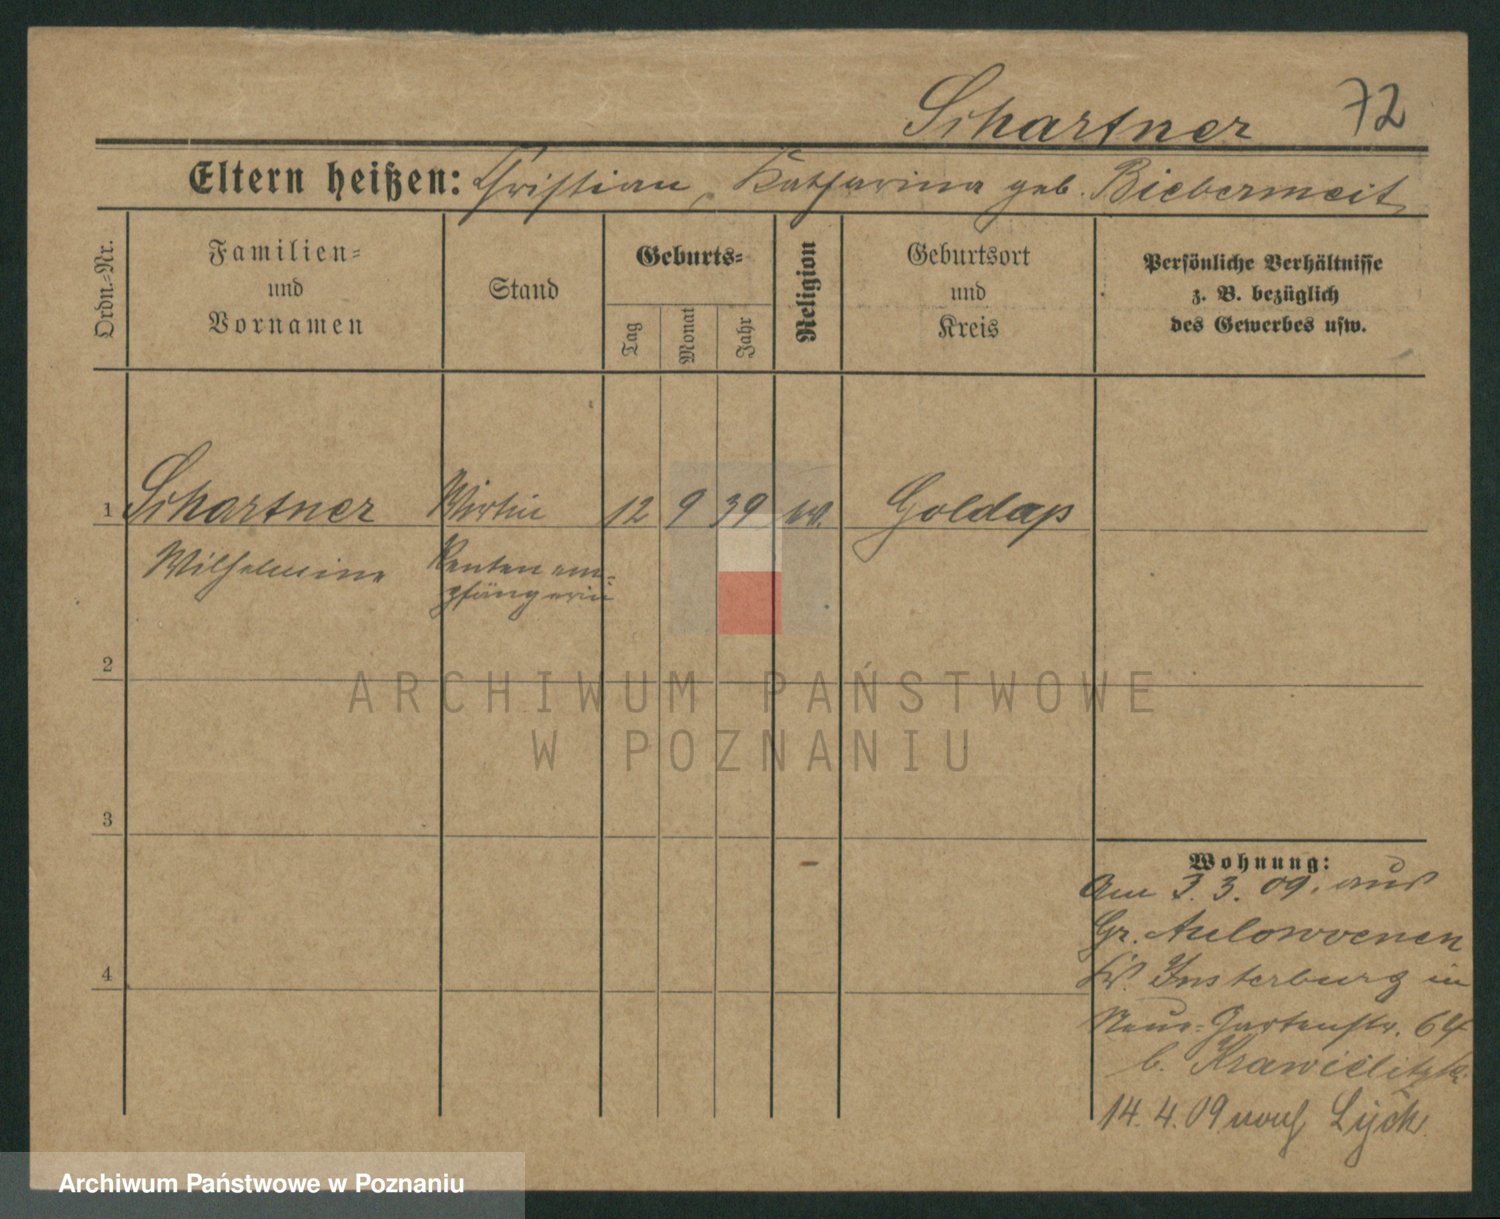 Schartner 72
Eltern heißen: Christian, Katharina geb. Biebermeit
Ordn.-Nr.
Familien=
und
Vornamen
Stand
Geburts=
Tag
Monat
Jahr
Religion
Geburtsort
und
Kreis
Persönliche Verhältnisse
z. B. bezüglich
des Gewerbes usw.
1 Schartner Wirtin 12 9 39 ev. Goldap
Wilhelmine Rentenem=
pfängerin
2
3
4
Wohnung:
Am 3.3.09. aus
Gr. Aulowoenen
Kr. Insterburg in
Neue=Gartenstr. 64
b.
14.4.09 nach Lyck
ARCHIWUM PAŃSTWOWE
W POZNANIU
Archiwum Państwowe w Poznaniu